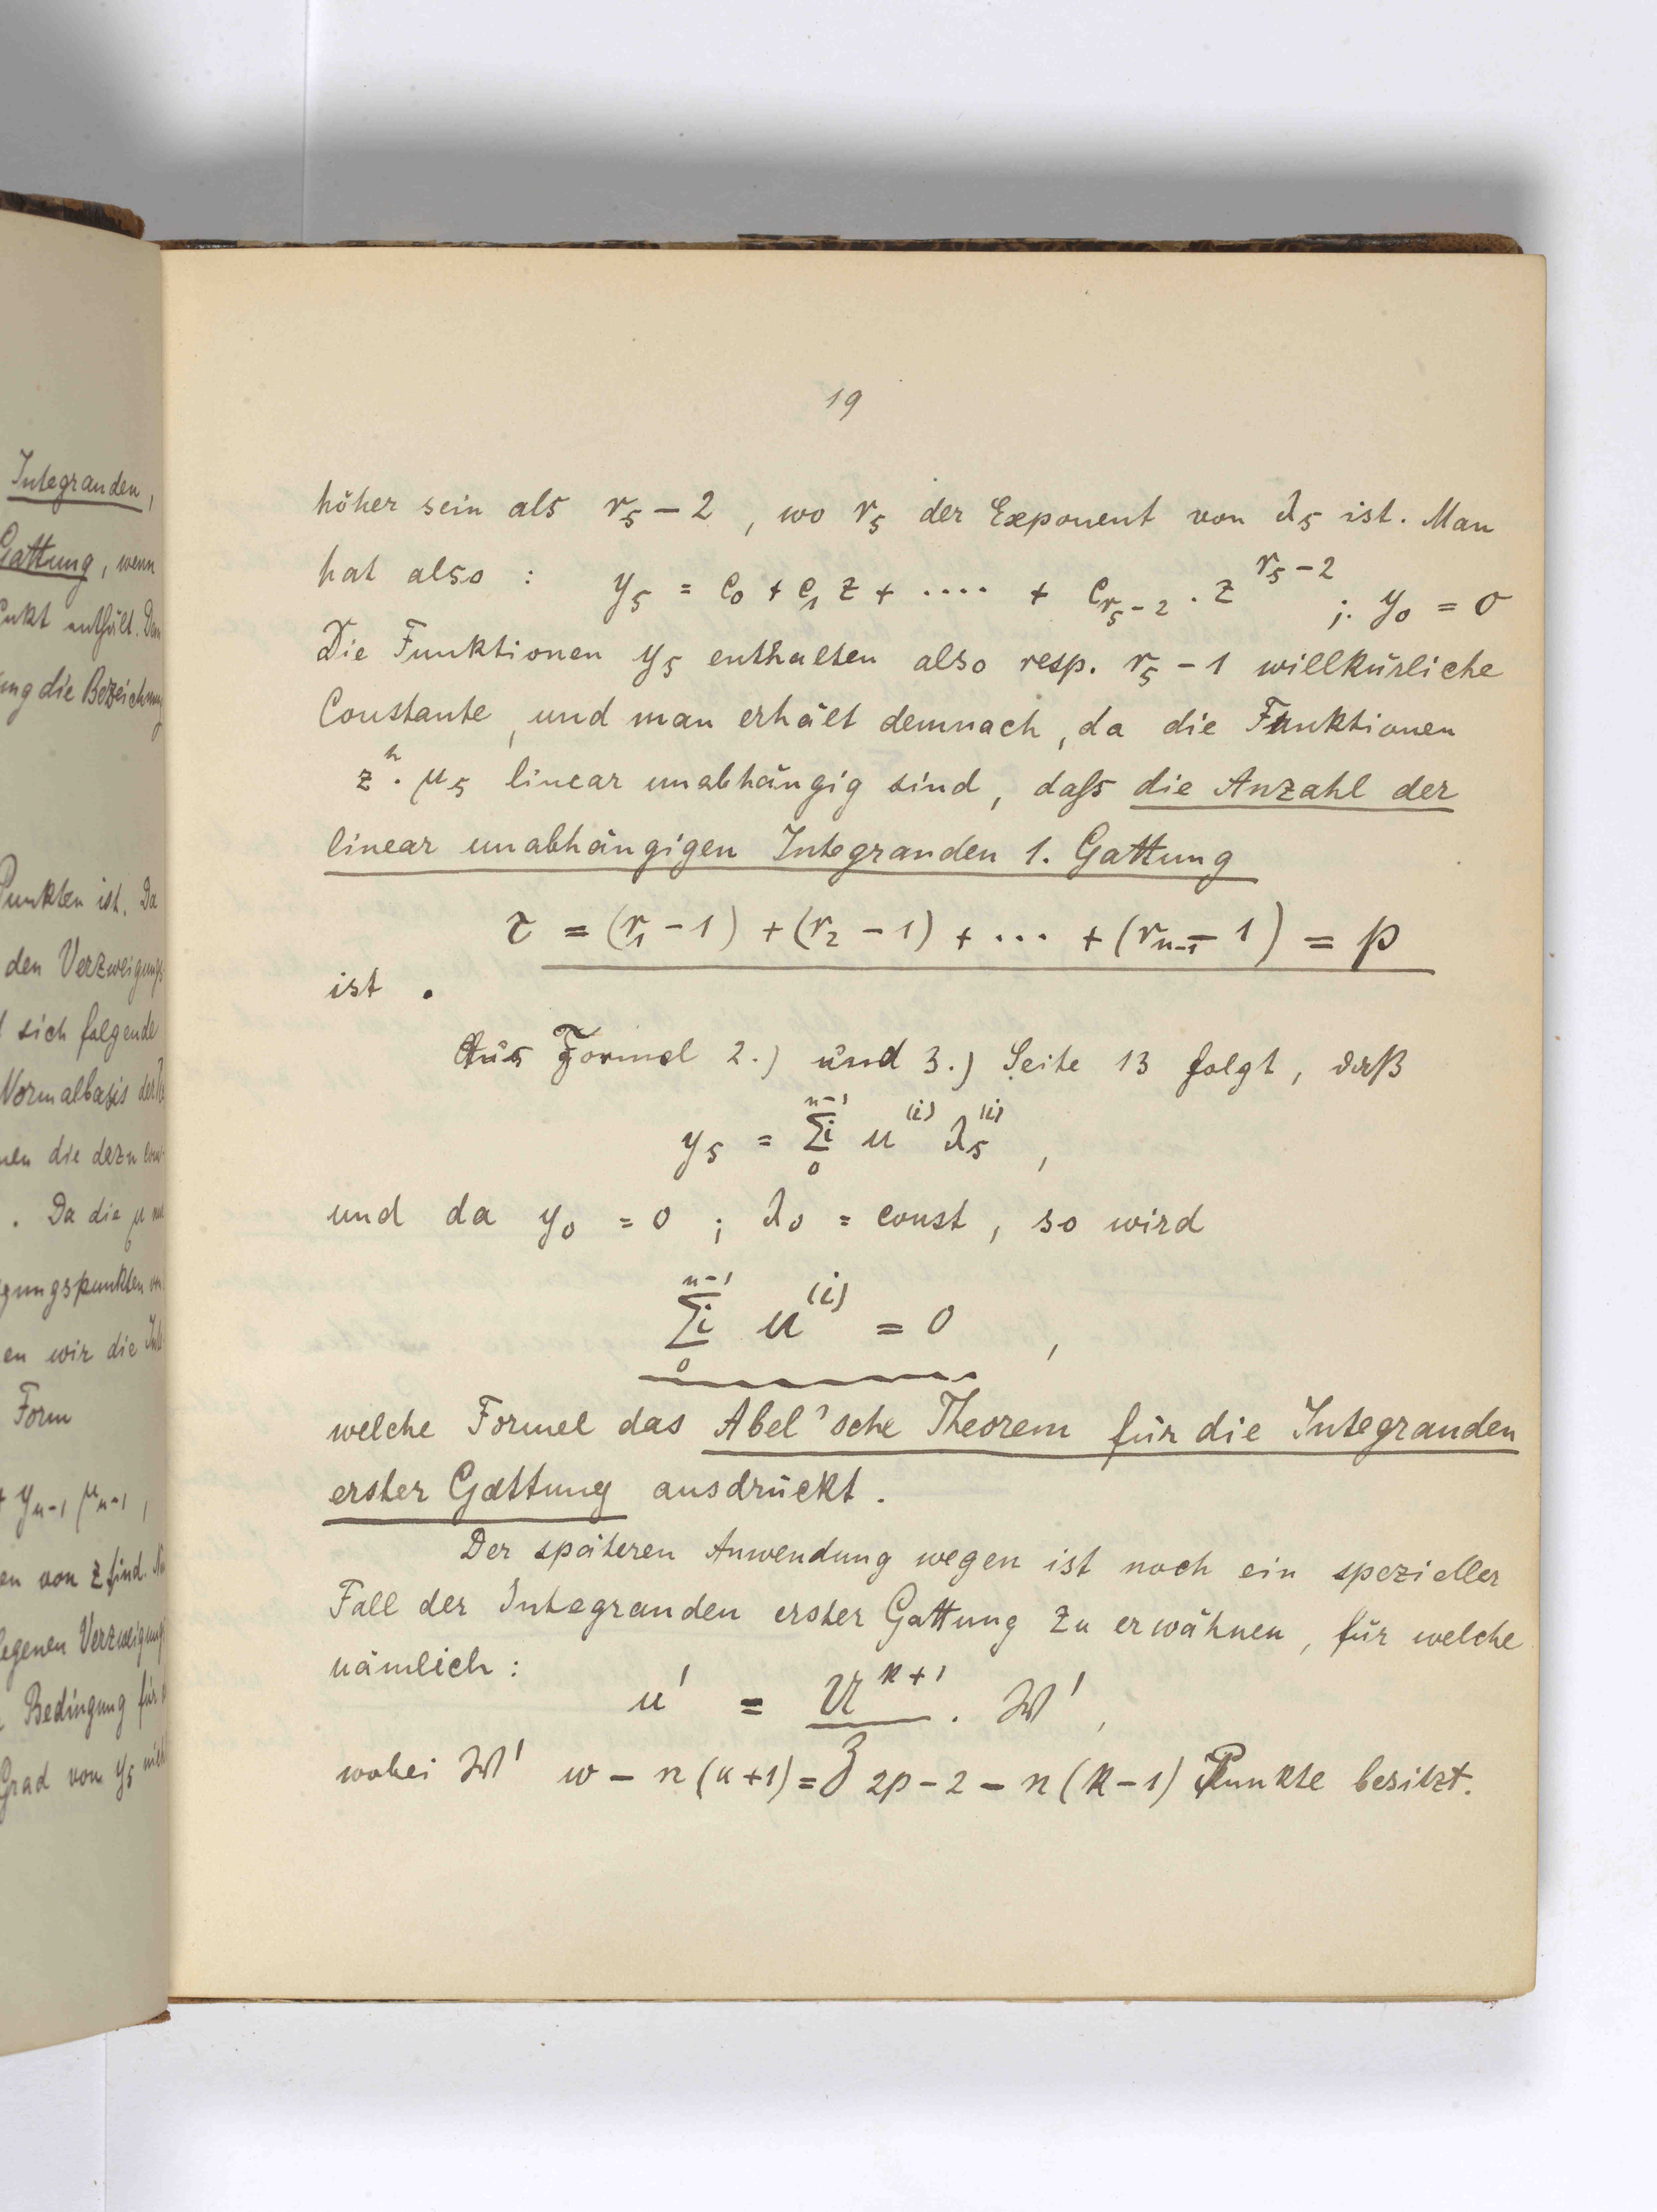 Integranden,
Gattung, wenn
enthält. Dan
ung die Bezeichnung
Punkten ist. Da
den Verzweigungs
sich folgende
Normalbasis der
die dazu
. Da die μ
gungspunkten
en wir die
Form
+ y_{n-1} μ_{n-1},
en von z sind.
legenen Verzweigung
Bedingung für
Grad von y_s
19
höher sein als r_s – 2, wo r_s der Exponent von λ_s ist. Man
hat also : y_s = c_0 + c_1 z + .... + c_{r_s-2} . z^{r_s-2} ; y_0 = 0
Die Funktionen y_s enthalten also resp. r_s – 1 willkürliche
Constante, und man erhält demnach, da die Funktionen
z^h . μ_s linear unabhängig sind, daſs die Anzahl der
linear unabhängigen Integranden 1. Gattung
τ = (r_1 – 1) + (r_2 – 1) + ... + (r_{n-1} – 1) = p
ist .
Aus Formel 2.) und 3.) Seite 13 folgt, daß
y_s = Σi_0^{n-1} u^{(i)} λ_s^{(i)} ,
und da y_0 = 0 ; λ_0 = const, so wird
Σi_0^{n-1} u^{(i)} = 0 ,
welche Formel das Abel'sche Theorem für die Integranden
erster Gattung ausdrückt.
Der späteren Anwendung wegen ist noch ein spezieller
Fall der Integranden erster Gattung zu erwähnen, für welche
nämlich :
u' = U^{k+1} . W' ,
3
wobei W' w – n(k+1) = 2p – 2 – n(k–1) Punkte besitzt.